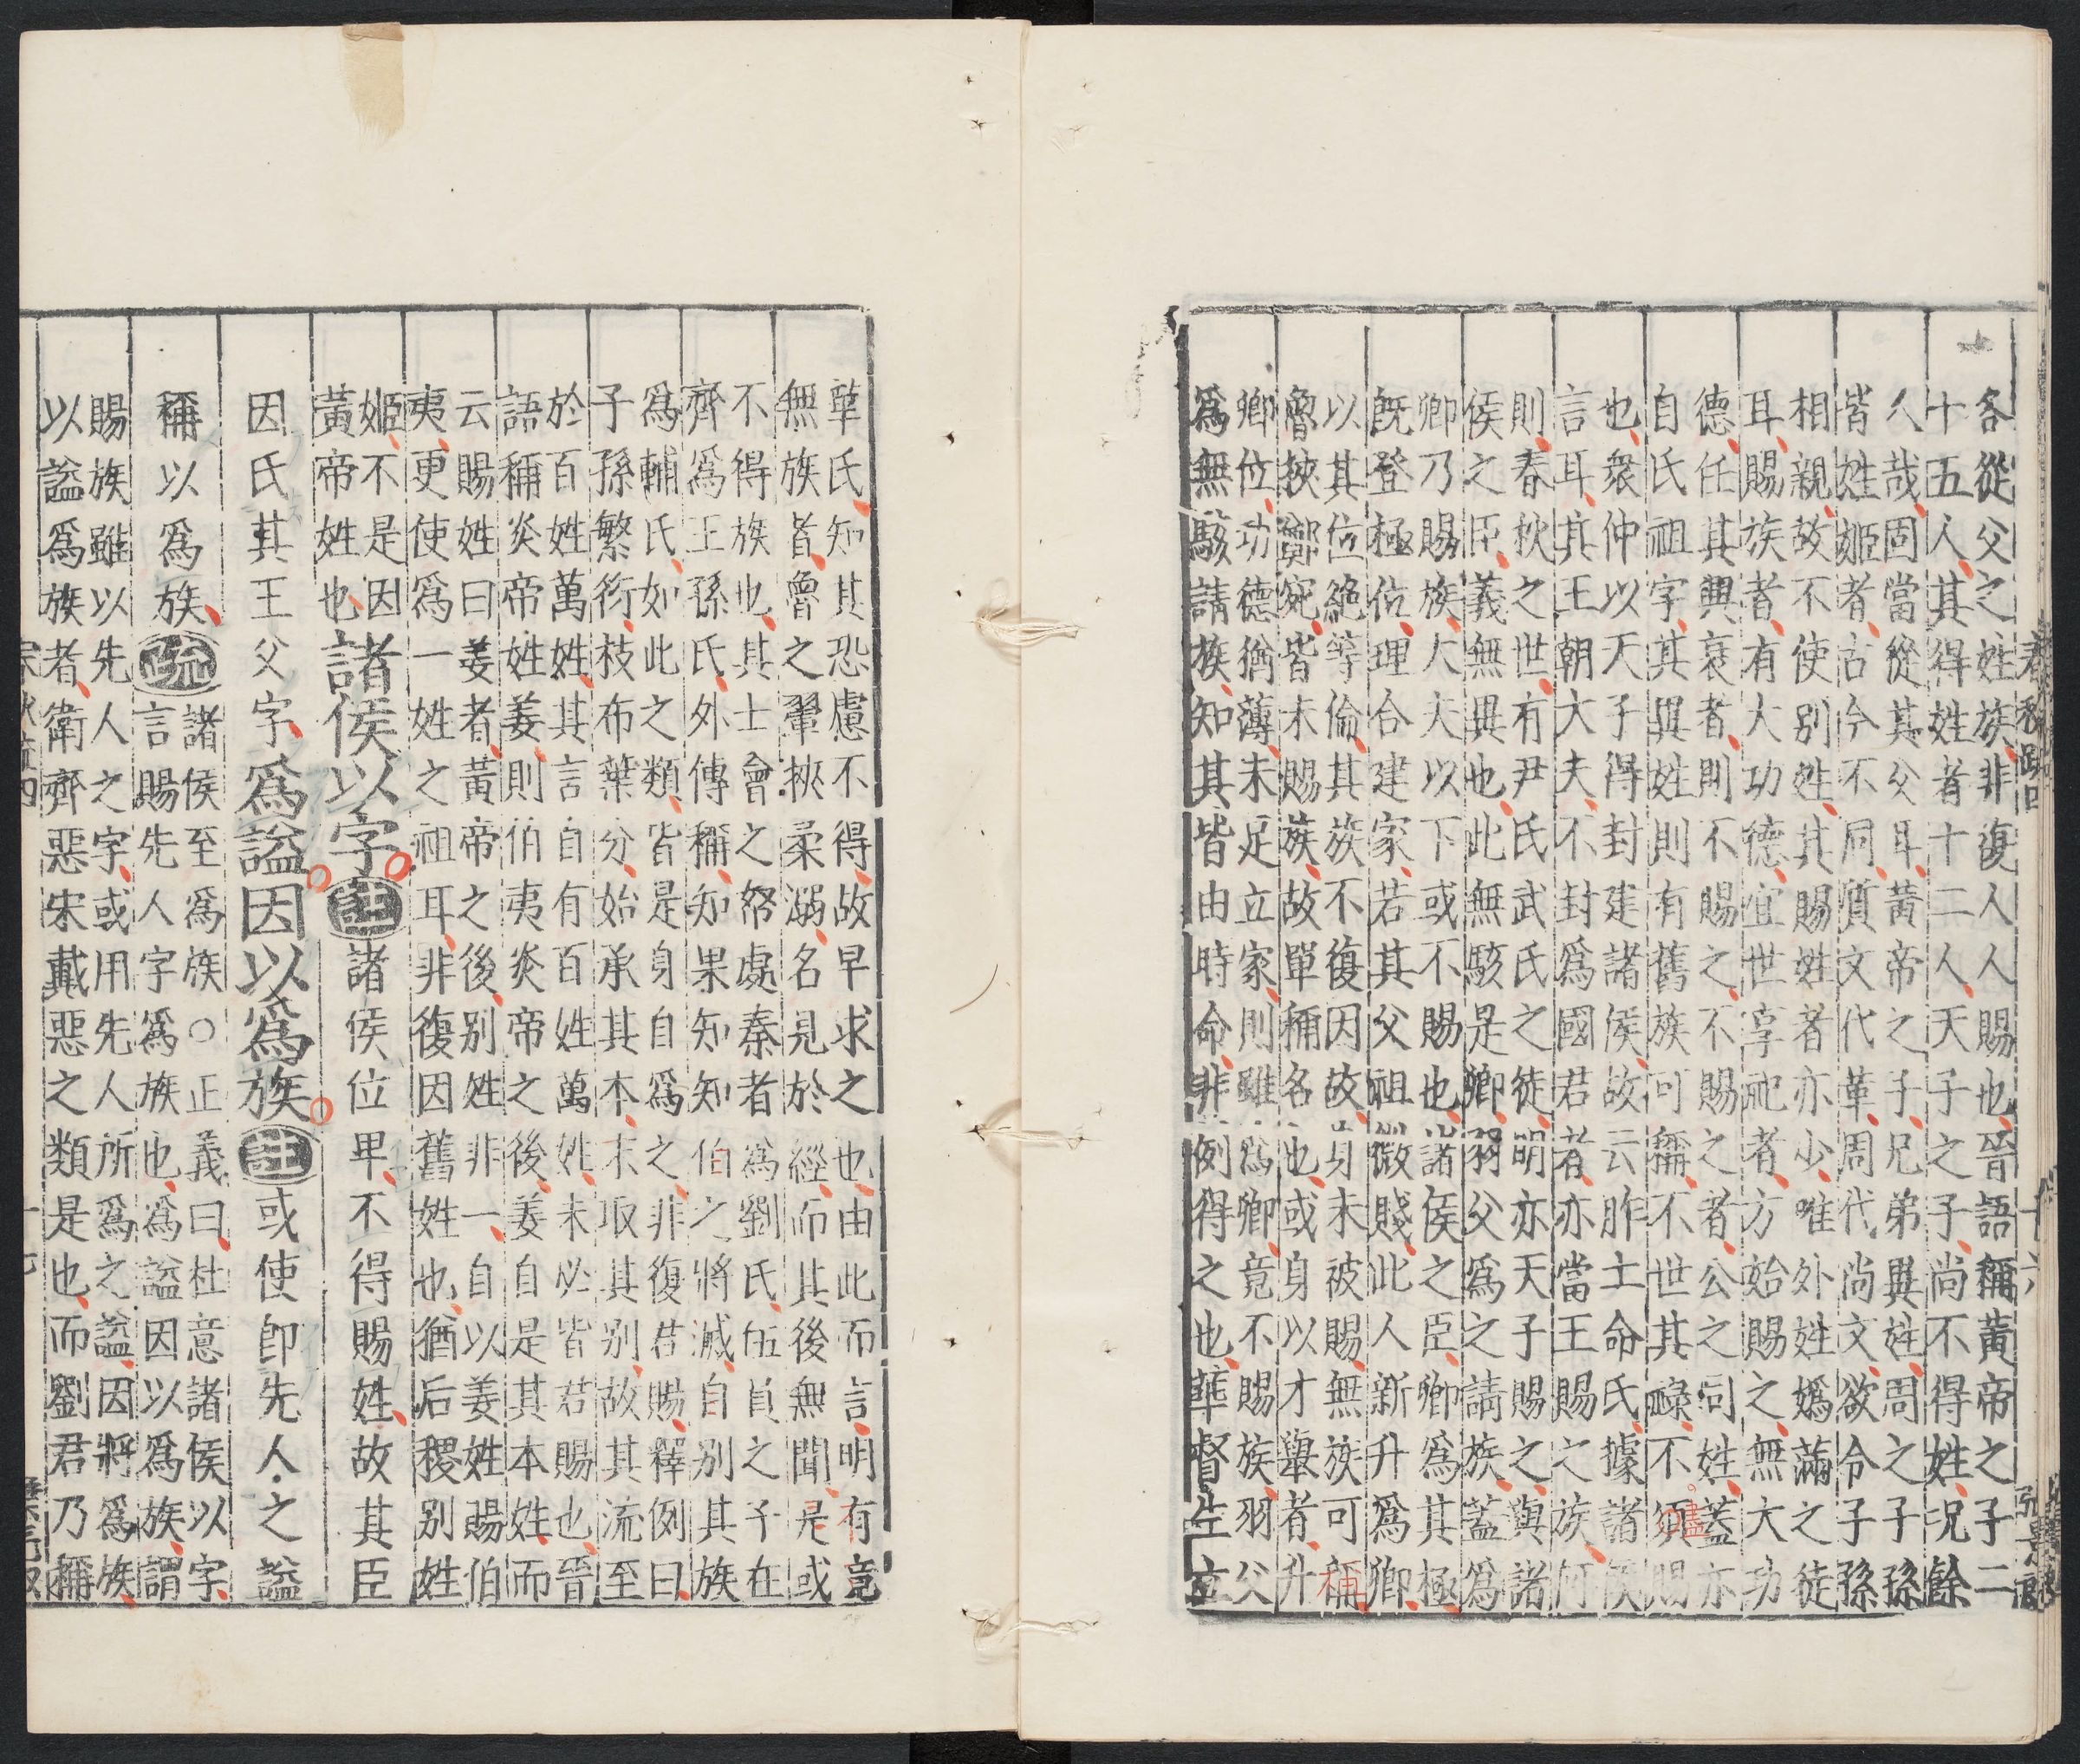 各從父之姓族非復人人賜也晉語稱黃帝之子二
十五人其得姓者十二人天子之子尚不得姓況餘
人哉固當從其父耳黃帝之子兄弟異姓周之子孫
皆姓姬者古今不同質文代革周代尚文欲令子孫
相親故不使別姓其賜姓者亦少唯外姓媯滿之徒
耳賜族者有大功德宜世享祀者方始賜之無大功
德任其興衰者則不賜之不賜之者公之同姓蓋亦
自氏祖字其異姓則有舊族可稱不世其祿不須賜
也眾仲以天子得封建諸侯故云胙土命氏據諸侯
言耳其王朝大夫不封為國君者亦當王賜之族何
則春秋之世有尹氏武氏之徒明亦天子賜之與諸
侯之臣義無異也此無駭是卿羽父為之請族蓋為
卿乃賜族大夫以下或不賜也諸侯之臣卿為其極
旣登極位理合建家若其父祖微賤此人新升為卿
以其位絕等倫其族不復因故身未被賜無族可稱
魯挾鄭宛皆未賜族故單稱名也或身以才舉者升
卿位功德猶薄未足立家則雖為卿竟不賜族羽父
為無駭請族知其皆由時命非例得之也華督生立
華氏知其恐慮不得故早求之也由此而言明有竟
無族者魯之翬挾柔溺名見於經而其後無聞是或
不得族也其士會之帑處秦者為劉氏伍員之子在
齊為王孫氏外傳稱知果知知伯之將滅自別其族
為輔氏如此之類皆是身自為之非復君賜釋例曰
子孫繁衍枝布葉分始承其本末取其別故其流至
於百姓萬姓其言自有百姓萬姓未必皆君賜也晉
語稱炎帝姓姜則伯夷炎帝之後姜自是其本姓而
云賜姓曰姜者黃帝之後別姓非一自以姜姓賜伯
夷更使為一姓之祖耳非復因舊姓也猶后稷別姓
姬不是因
黃帝姓也諸侯以字註諸侯位卑不得賜姓故其臣
因氏其王父字為謚因以為族註或使即先人之謚
稱以為族疏諸侯至為族○正義曰杜意諸侯以字
言賜先人字為族也為謚因以為族謂
賜族雖以先人之字或用先人所為之謚因將為族
以謚為族者衛齊惡宋戴惡之類是也而劉君乃稱